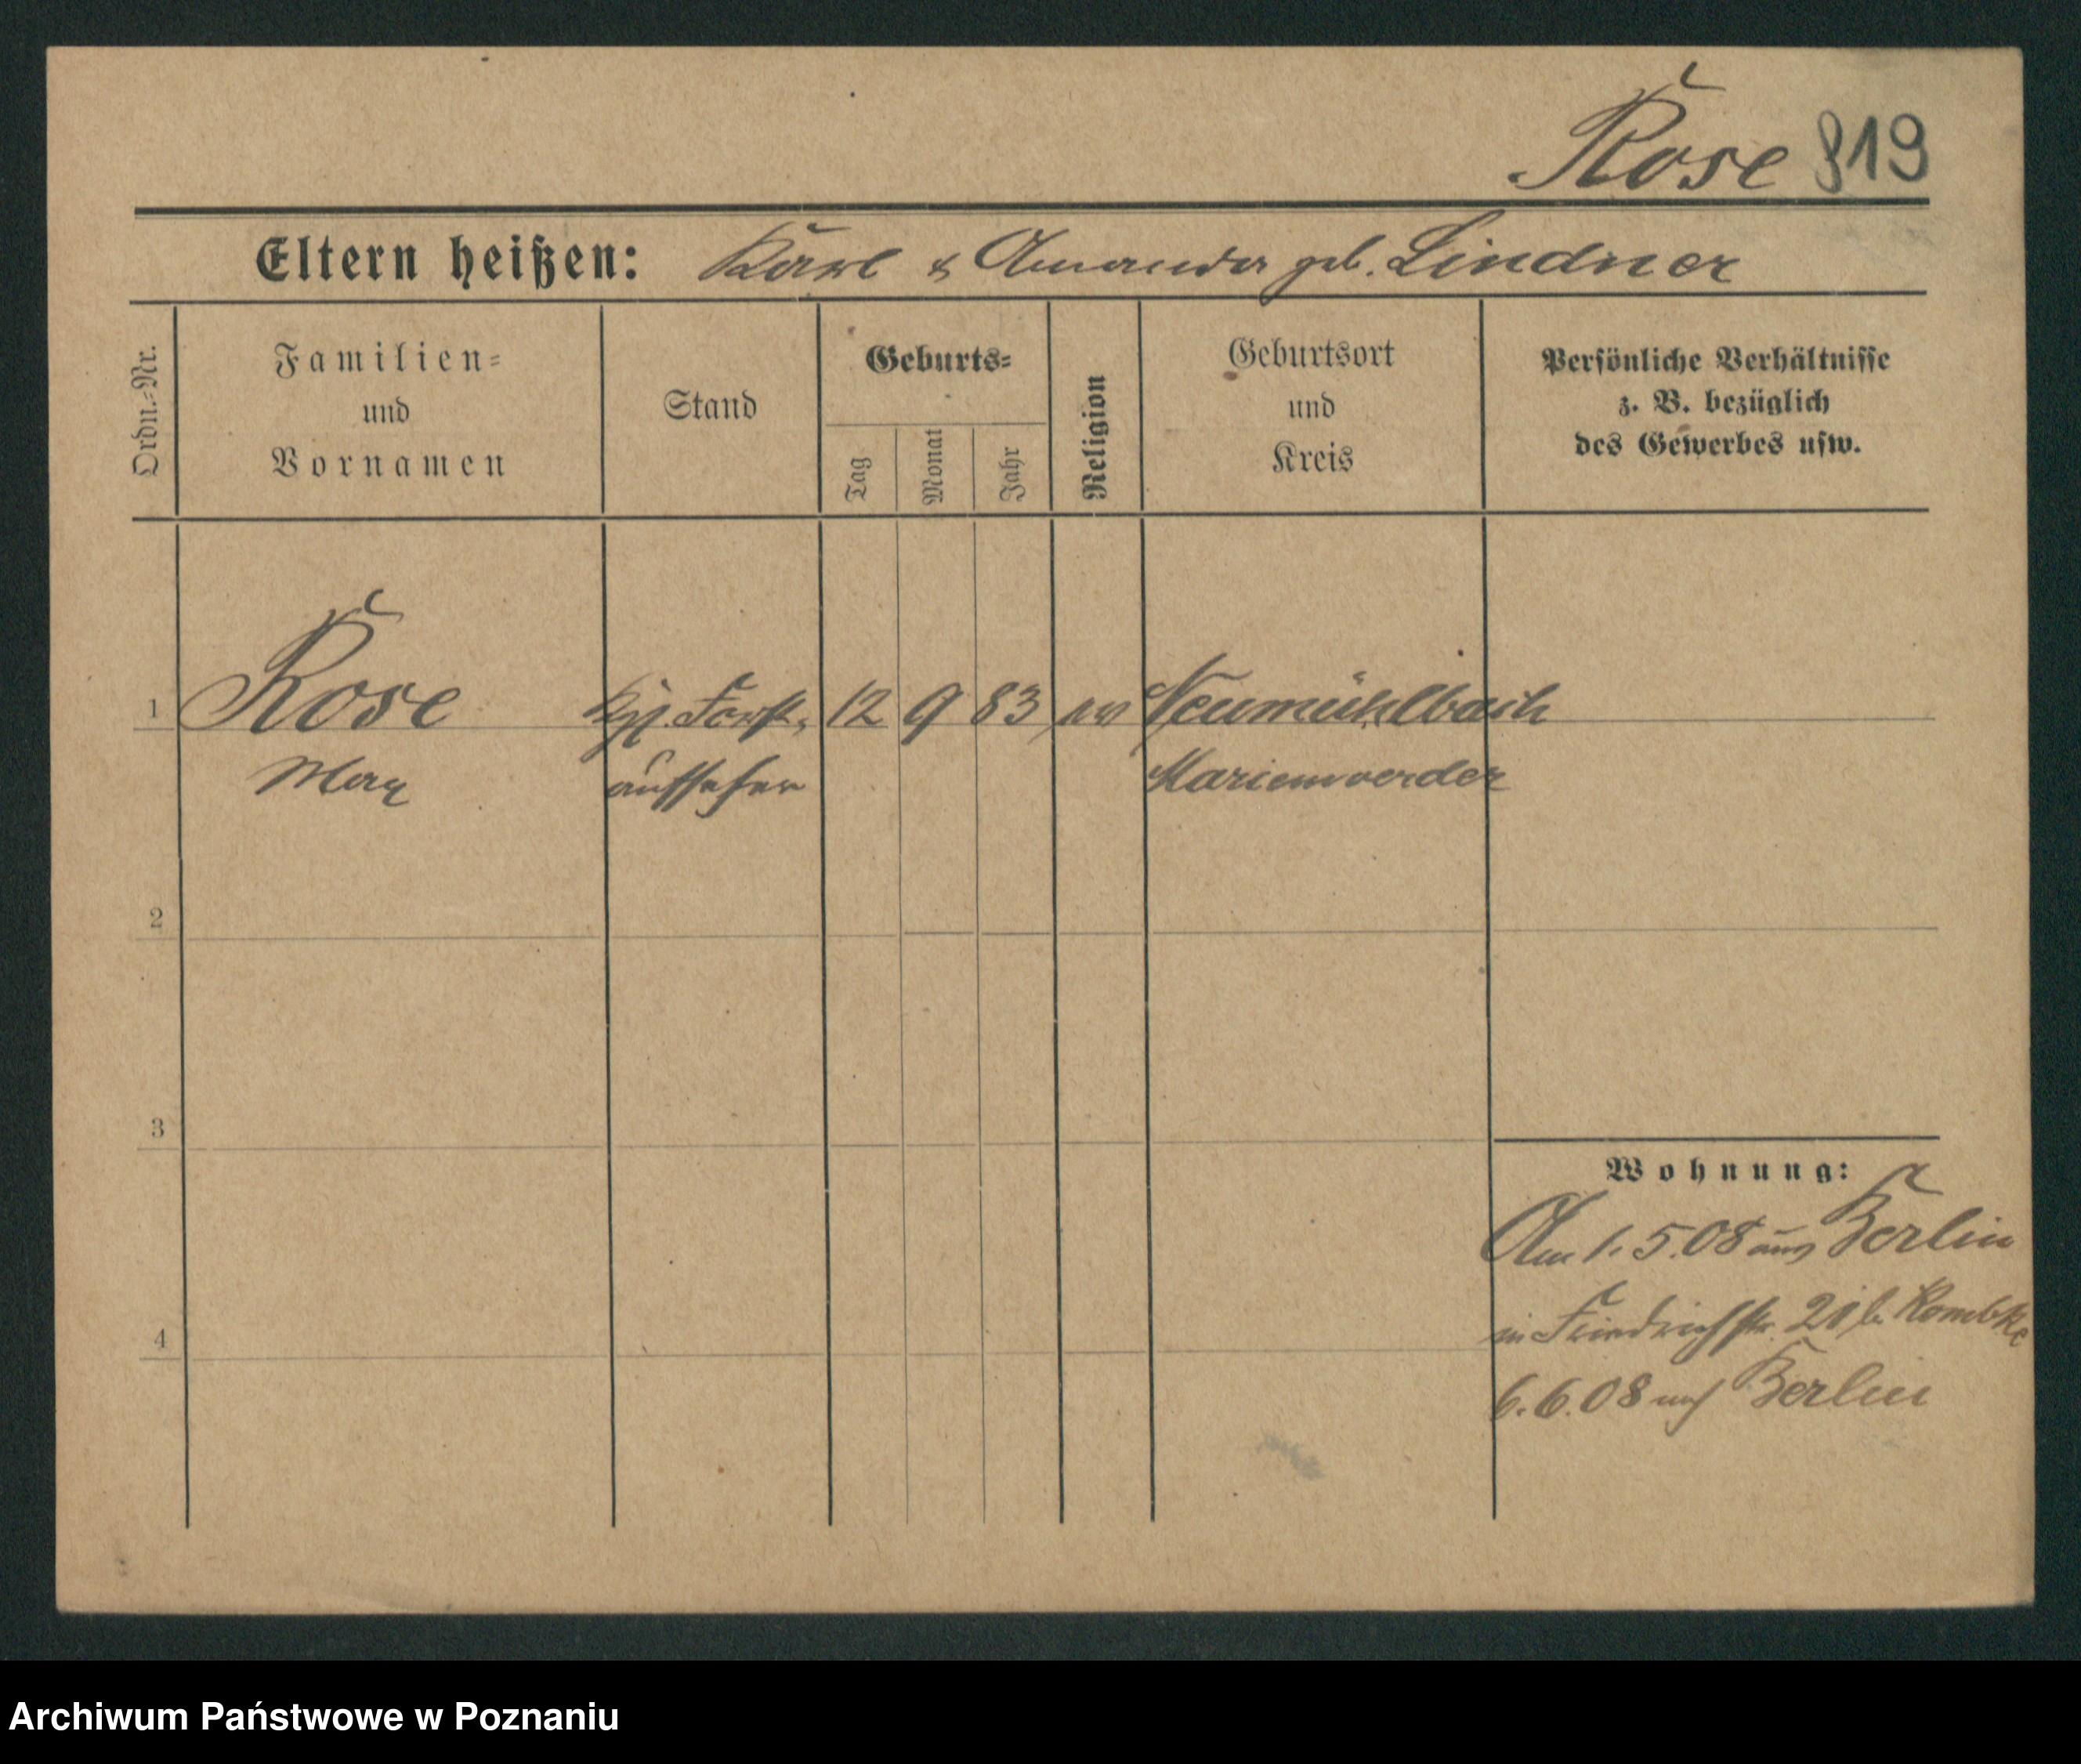 Rose 819
Eltern heißen: Karl & Amanda geb. Lindner
Ordn.-Nr.
Familien-
und
Vornamen
Stand
Geburts-
Tag
Monat
Jahr
Religion
Geburtsort
und
Kreis
Persönliche Verhältnisse
z. B. bezüglich
des Gewerbes usw.
1 Rose Kgl. Forst- 12 9 83 ev Neumühlbach
Max aufseher Marienwerder
2
3
4
Wohnung:
Am 1.5.08 aus Berlin
in Friedrichstr. 21 b.
6.6.08 nach Berlin
Archiwum Państwowe w Poznaniu